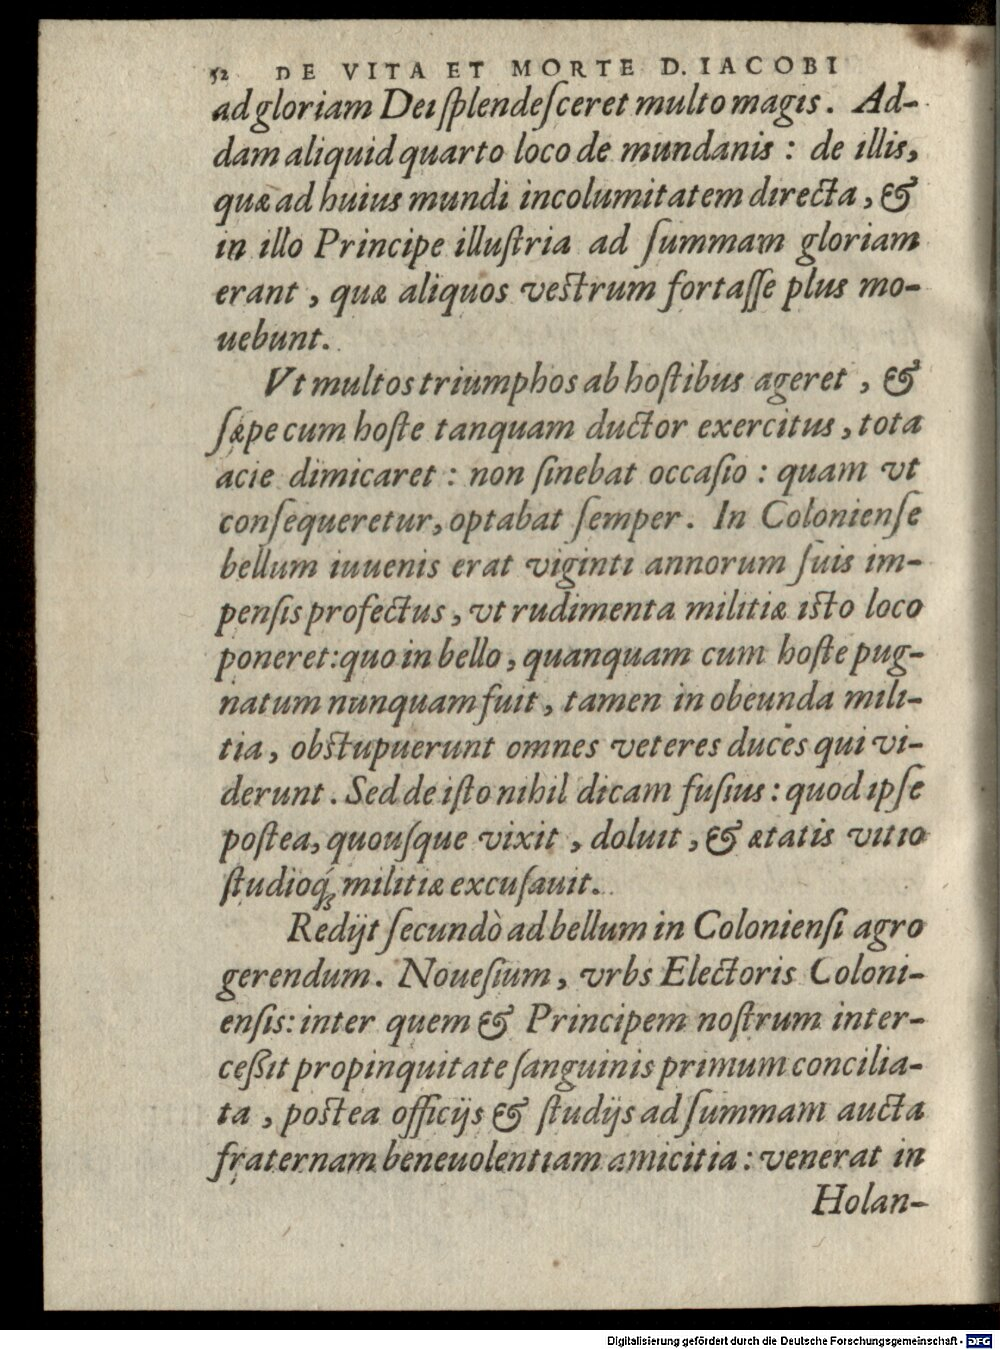 52 DE VITA ET MORTE D. IACOBI
ad gloriam Dei ſplendeſceret multo magis. Ad-
dam aliquid quarto loco de mundanis : de illis,
quæ ad huius mundi incolumitatem directa, &
in illo Principe illuſtria ad ſummam gloriam
erant, quæ aliquos veſtrum fortaſſe plus mo-
uebunt.
Vt multos triumphos ab hoſtibus ageret, &
ſæpe cum hoſte tanquam ductor exercitus, tota
acie dimicaret : non ſinebat occaſio : quam vt
conſequeretur, optabat ſemper. In Colonienſe
bellum iuuenis erat viginti annorum ſuis im-
penſis profectus, vt rudimenta militiæ iſto loco
poneret: quo in bello, quanquam cum hoſte pug-
natum nunquam fuit, tamen in obeunda mili-
tia, obſtupuerunt omnes veteres duces qui vi-
derunt. Sed de iſto nihil dicam fuſius : quod ipſe
poſtea, quouſque vixit, doluit, & ætatis vitio
ſtudioq́; militiæ excuſauit.
Redijt ſecundò ad bellum in Colonienſi agro
gerendum. Noueſium, vrbs Electoris Coloni-
enſis: inter quem & Principem noſtrum inter-
ceßit propinquitate ſanguinis primum concilia-
ta, poſtea officijs & ſtudijs ad ſummam aucta
fraternam beneuolentiam amicitia : venerat in
Holan-
Digitalisierung gefördert durch die Deutsche Forschungsgemeinschaft - DFG